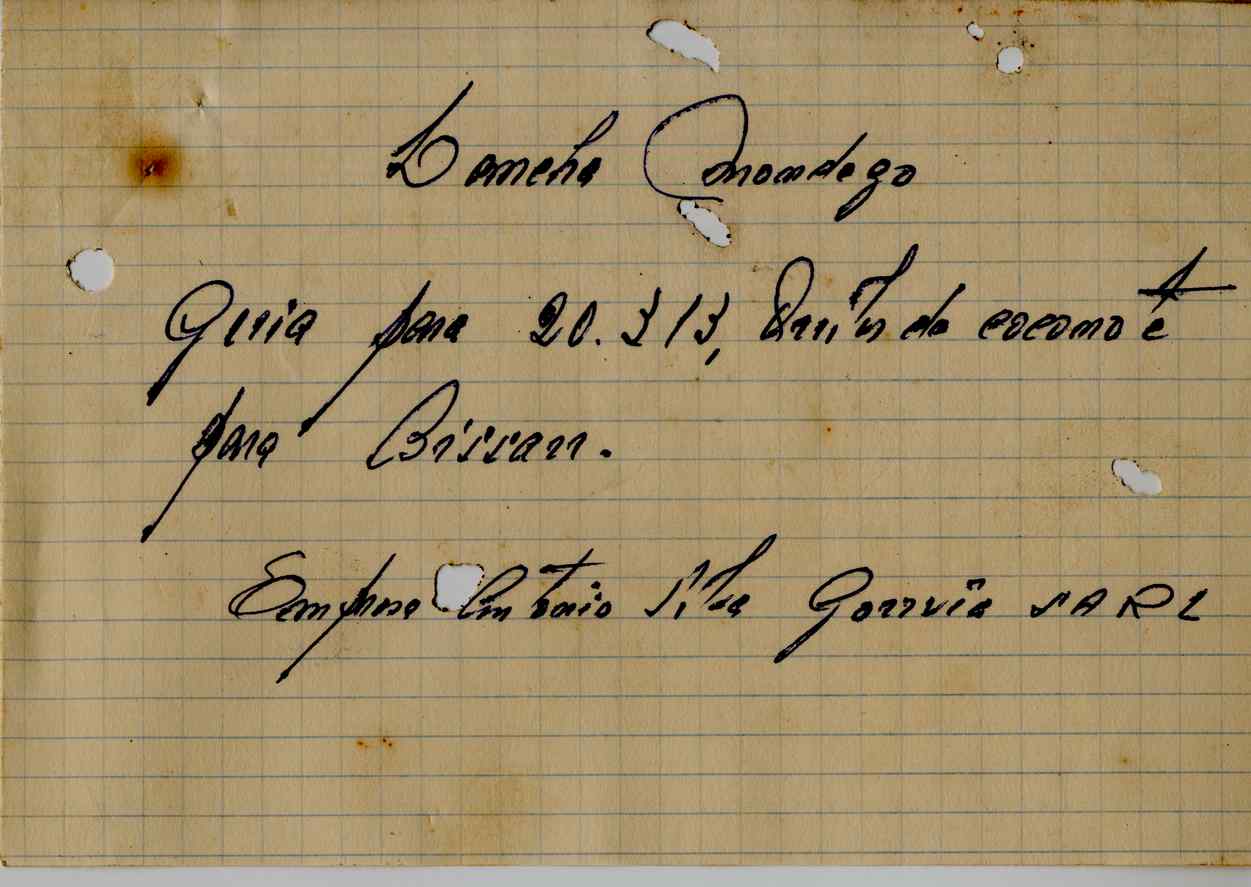 Lancha Mondego
Guia para 20.313, Quilos de coconot e
para Bissau.
Empresa Antonio Silva Gouveia SARL